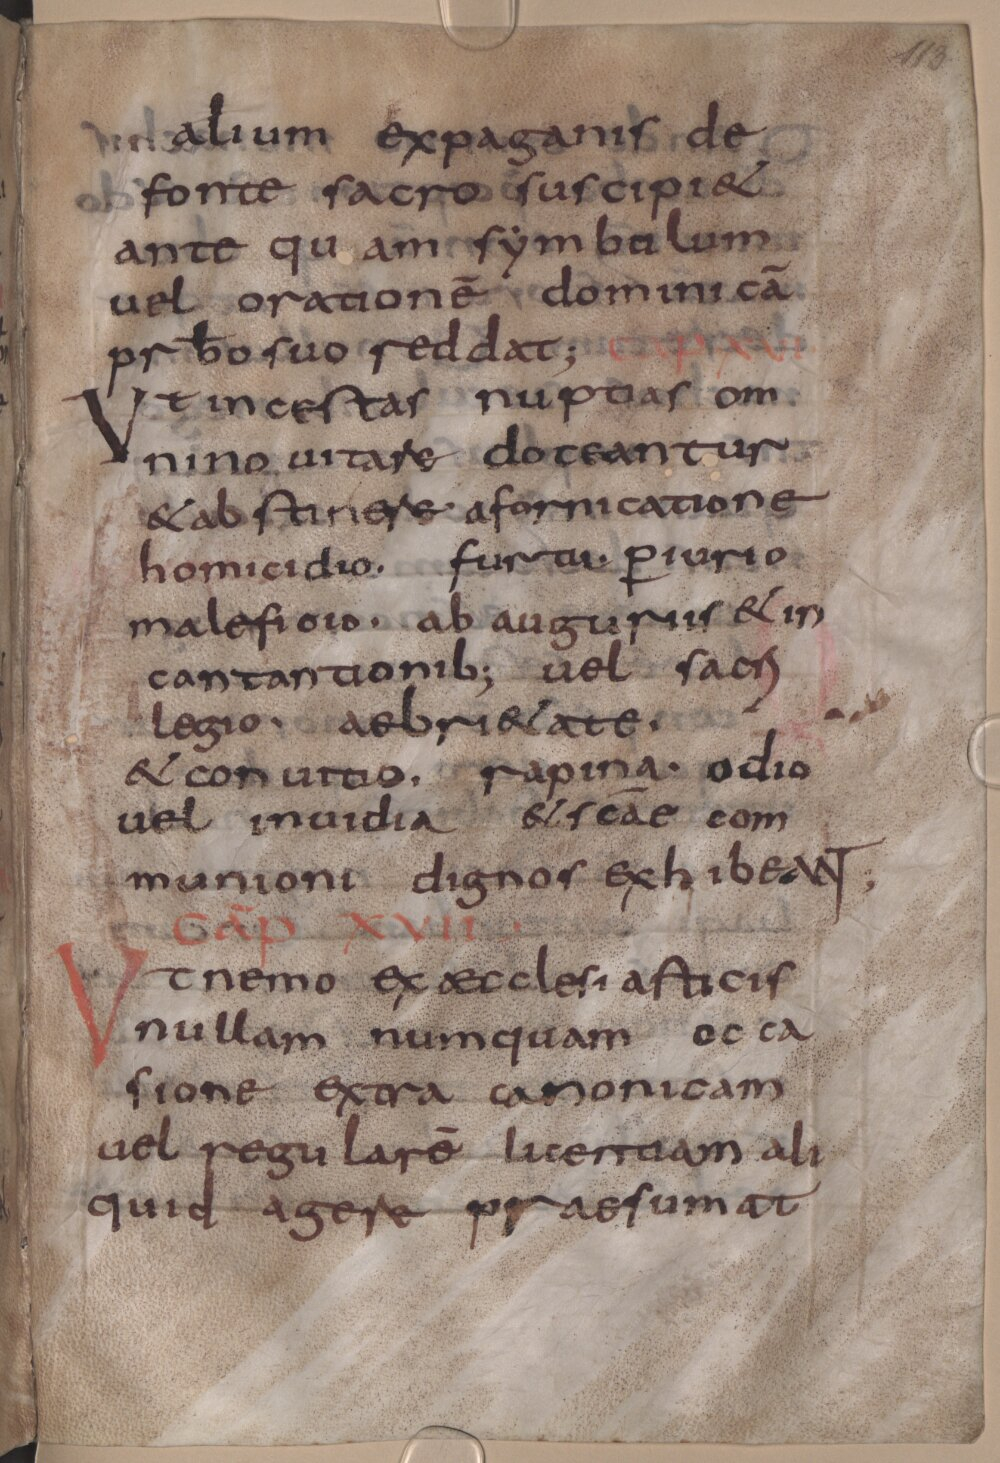 113
alium expaganis de
fonte sacro suscipi&
ante qu am sẏmbulum
uel orationē dominicã
prƀo suo reddat; CAP XVI.
Vt incestas nuptias om
nino uitare doceantur
&ab stinere afornicatione
homicidio. furtu. ꝑiurio
maleficio. ab auguriis & in
cantantionib; uel sacri
legio. aebri&ate.
& conuitio. rapina. odio
uel inuidia & scãe com
munioni dignos exhibeANT;
CÃP XVII.
Vt nemo ex æcclesi asticis
nullam numquam occa
sione extra canonicam
uel regularē licentiam ali
quid agere praesumat